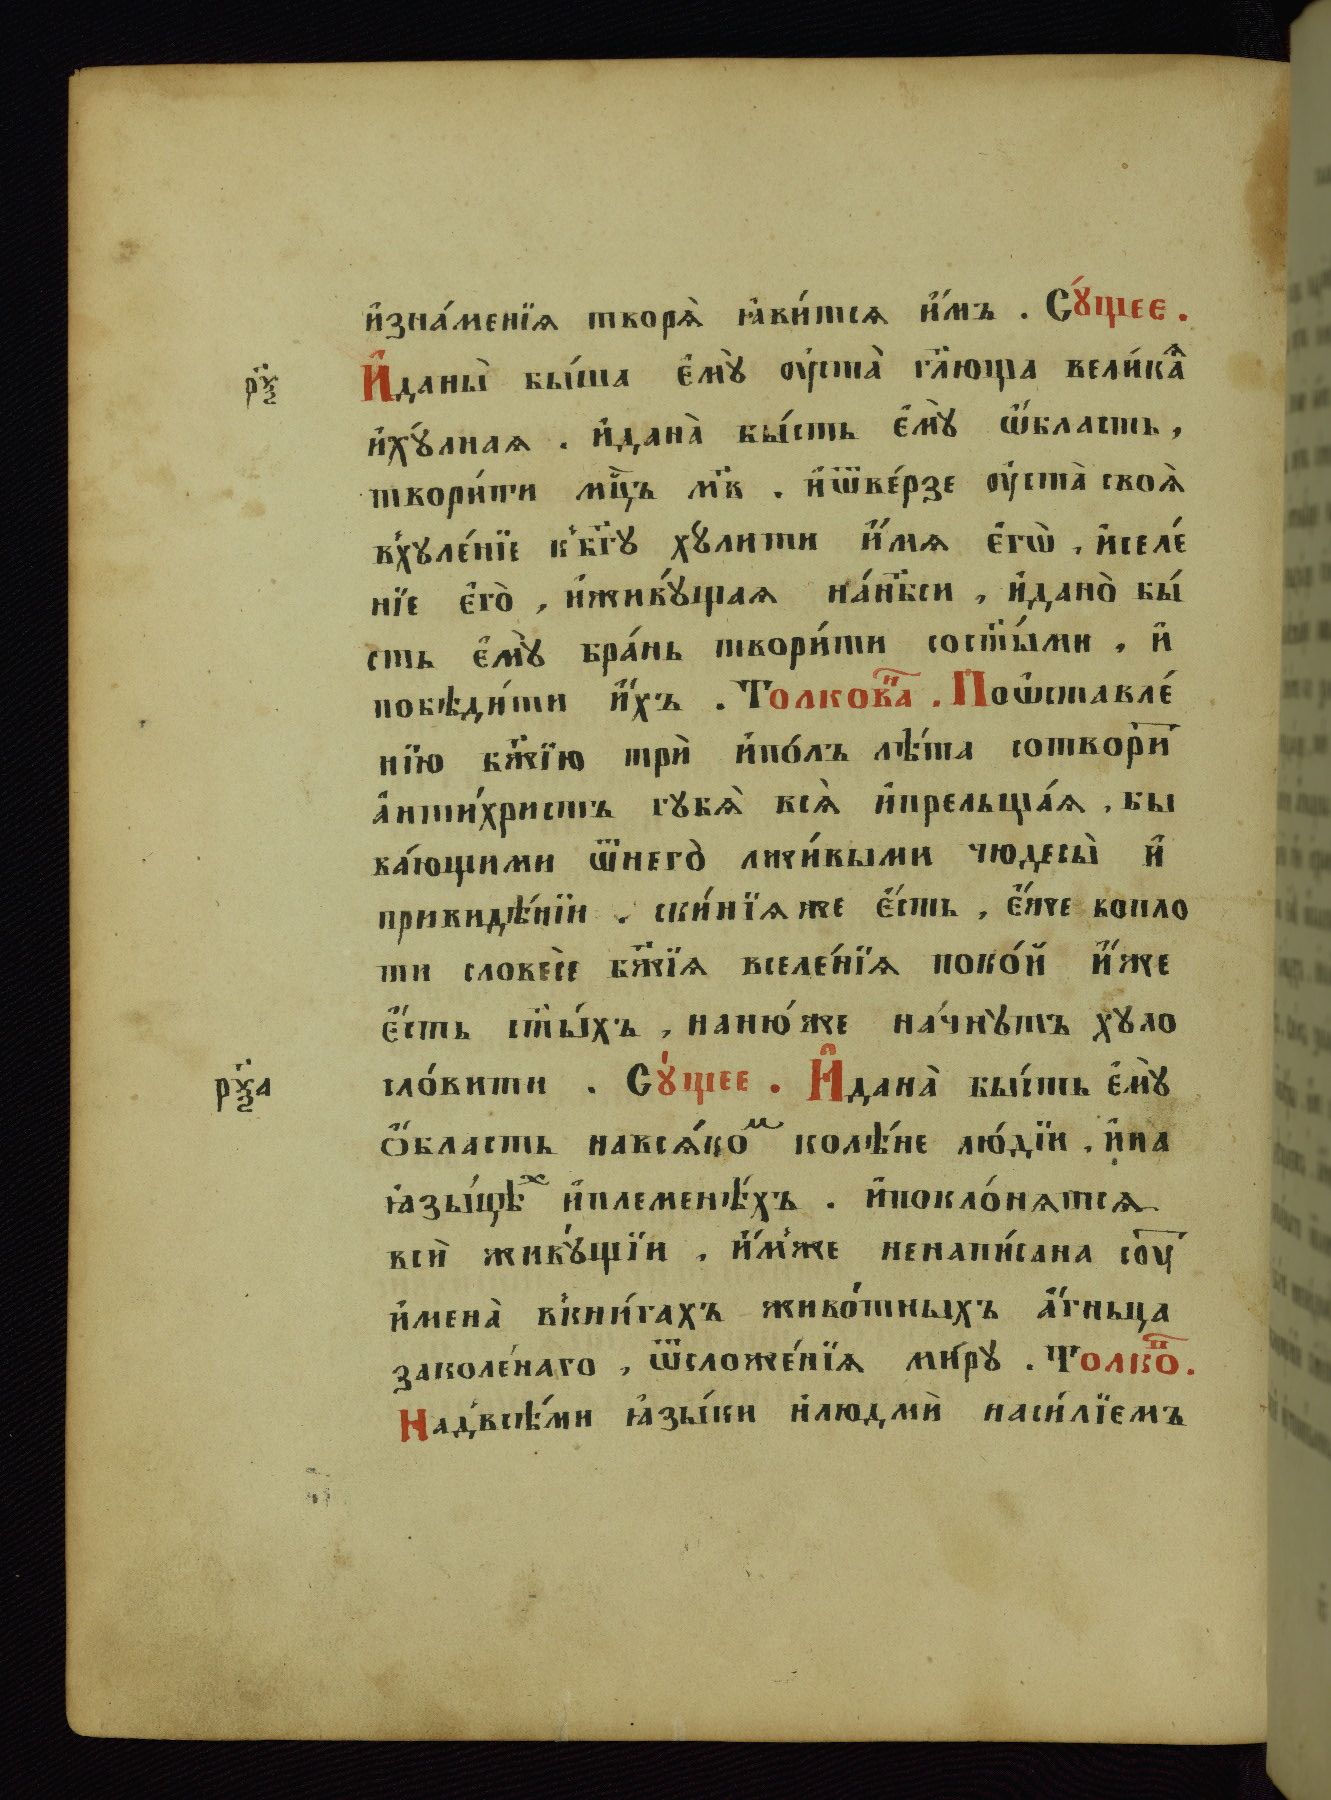 и҆зна́менїѧ творѧ̀ ꙗ҆ви́тсѧ и҆̀мъ . Сꙋ́щее .
рѯ҃
И҆даны̀ бы́ша є҆мꙋ̀ ᲂу҆ста̀ гл҃юща вели́каѧ
и҆хꙋ́лнаѧ . и҆дана̀ бы́сть є҆мꙋ̀ ѡ҆́бласть ,
твори́ти мц҃ъ м҃в . и҆ѿве́рзе ᲂу҆ста̀ своѧ̀
вхꙋле́нїе к̾бг҃ꙋ хꙋ́лити и҆́мѧ є҆гѡ̀ , и҆селе́
нїе є҆го̀ , и҆живꙋ́щаѧ на́нб҃си , и҆дано̀ бы́
сть є҆мꙋ̀ бра́нь твори́ти сост҃ы́ми , и҆
побѣди́ти и҆́хъ . Толкова҃нї . Поѡ҆ставле́
нїю бж҃їю трѝ и҆по́лъ лѣ́та сотвори҃
а҆нти́христъ гꙋбѧ̀ всѧ̀ и҆прельща́ѧ , бы
ва́ющими ѿнего̀ лжи́выми чюдесы̀ и҆
привидѣ́нїи . ски́нїѧже є҆́сть , є҆́же вопло
ти словесѐ бж҃їѧ вселе́нїѧ поко́й и҆́же
є҆́сть ст҃ы́хъ , наню́же начнꙋ́тъ хꙋло
сло́вити . Сꙋ́щее . И҆дана̀ бы́сть є҆мꙋ̀
рѯ҃а
ѻ҆́бласть навсѧ́комъ колѣ́не лю́дїи , и҆на
ꙗ҆зы́цѣх и҆племенѣ́хъ . и҆покло́нѧтсѧ
всѝ живꙋ́щїи , и҆́мже ненапи́сана сꙋ́т
и҆мена̀ в̾кни́гахъ живо́тныхъ а҆́гньца
заколе́наго , ѿсложе́нїѧ ми́рꙋ . Толко҃в .
Над̾всѣ́ми ꙗ҆зы́ки и҆людмѝ наси́лїемъ